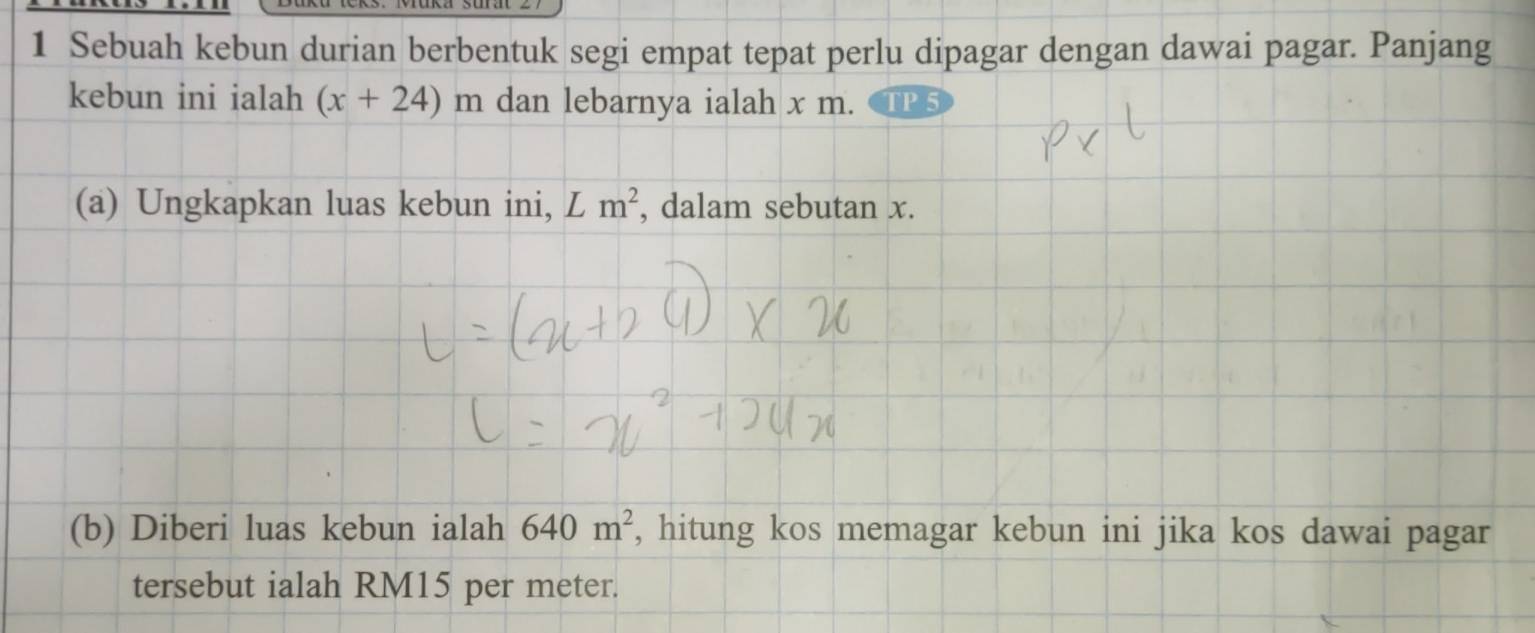 Buku teks: Muka surat 27
1 Sebuah kebun durian berbentuk segi empat tepat perlu dipagar dengan dawai pagar. Panjang
kebun ini ialah (x + 24) m dan lebarnya ialah x m. TP 5
p x l
(a) Ungkapkan luas kebun ini, L m², dalam sebutan x.
L = (x+24) x x
L = x² + 24x
(b) Diberi luas kebun ialah 640 m², hitung kos memagar kebun ini jika kos dawai pagar
tersebut ialah RM15 per meter.